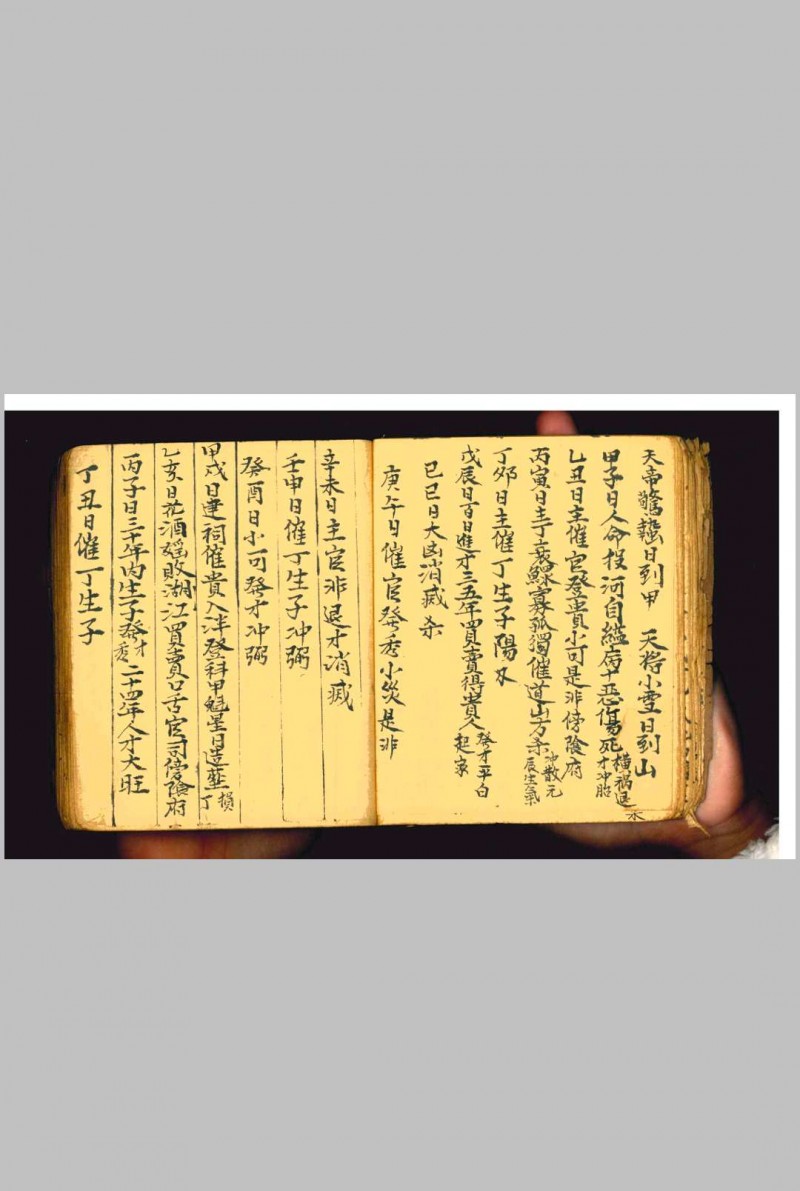 天帝驚蟄日到甲　天將小雪日到山
甲子日人命投河自縊病十惡傷死橫禍退才冲胎
水
乙丑日主催官登貴小可是非傍陰府
丙寅日主丁衰鰥寡孤獨催道山方杀冲散元辰生氣
丁夘日主催丁生子陽刄
戊辰日百日進才三五年買賣得貴人發才平白起家
己巳日大凶消滅杀
庚午日催官發秀小災是非
辛未日主官非退才消滅
壬申日催丁生子冲弼
癸酉日小可發才冲弼
甲戌日建祠催貴入泮登科甲魁星日造葬損丁
乙亥日花酒婬敗湖江買賣口舌官司傍陰府
丙子日三十年內生子發才秀二十四年人才大旺
丁丑日催丁生子